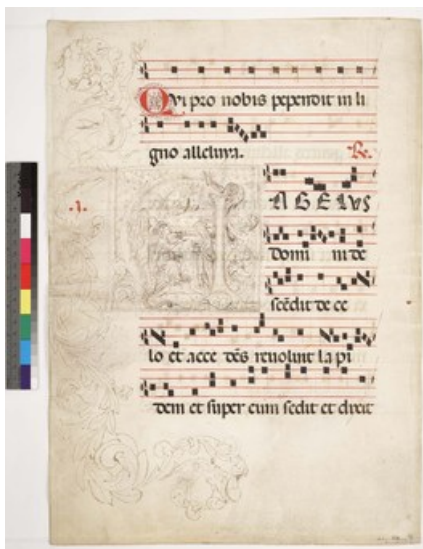 Qui pro nobis pependit in li
gno alleluya. R.
.1.
A N G E LVS
Domi ni de
scēdit de ce
lo et acce dēs reuoluit la pi
dem et super eum sedit et dixit